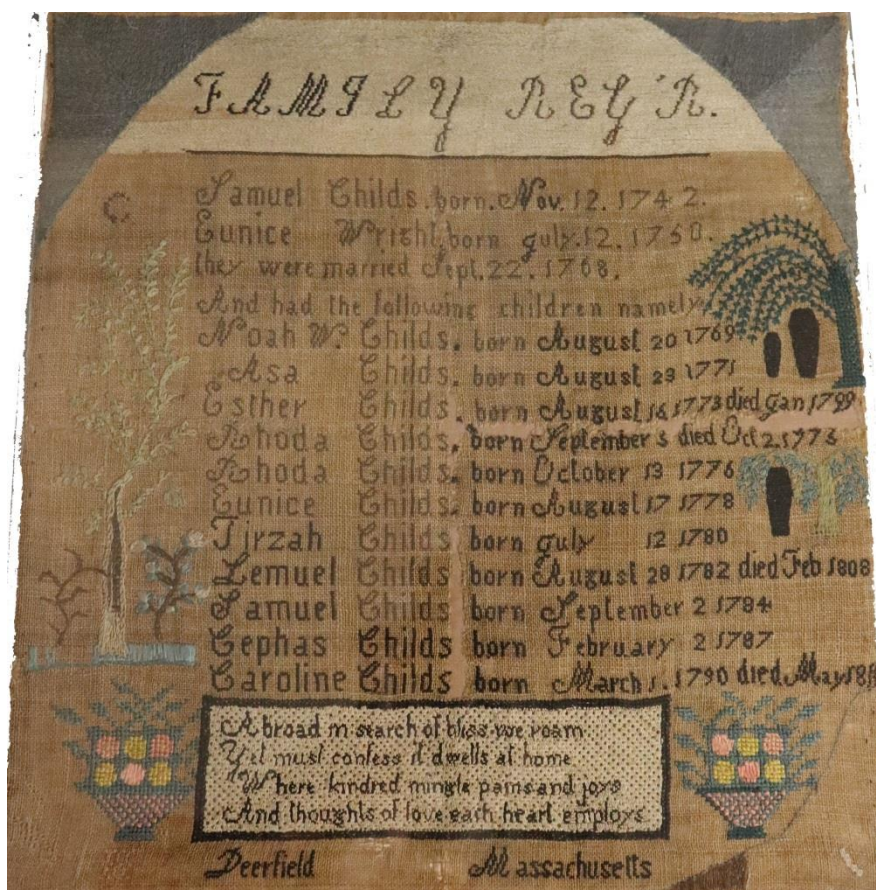 FAMILY REG'R.
Samuel Childs. born. Nov. 12. 1742.
Eunice Wright. born july. 12. 1750.
they were married Sept. 22. 1768.
And had the following children namely
Noah W. Childs. born August 20 1769
Asa Childs. born August 23 1771
Esther Childs. born August 16 1773 died Jan 1799
Rhoda Childs. born September 3 died Oct 2. 1775
Rhoda Childs. born October 13 1776
Eunice Childs. born August 17 1778
Tirzah Childs born july 12 1780
Lemuel Childs born August 28 1782 died Feb 1808
Samuel Childs born September 2 1784
Cephas Childs born February 2 1787
Caroline Childs born March 1. 1790 died May
Abroad in search of bliss we roam
Yet must confess it dwells at home
Where kindred mingle pains and joys
And thoughts of love each heart employs
Deerfield Massachusetts